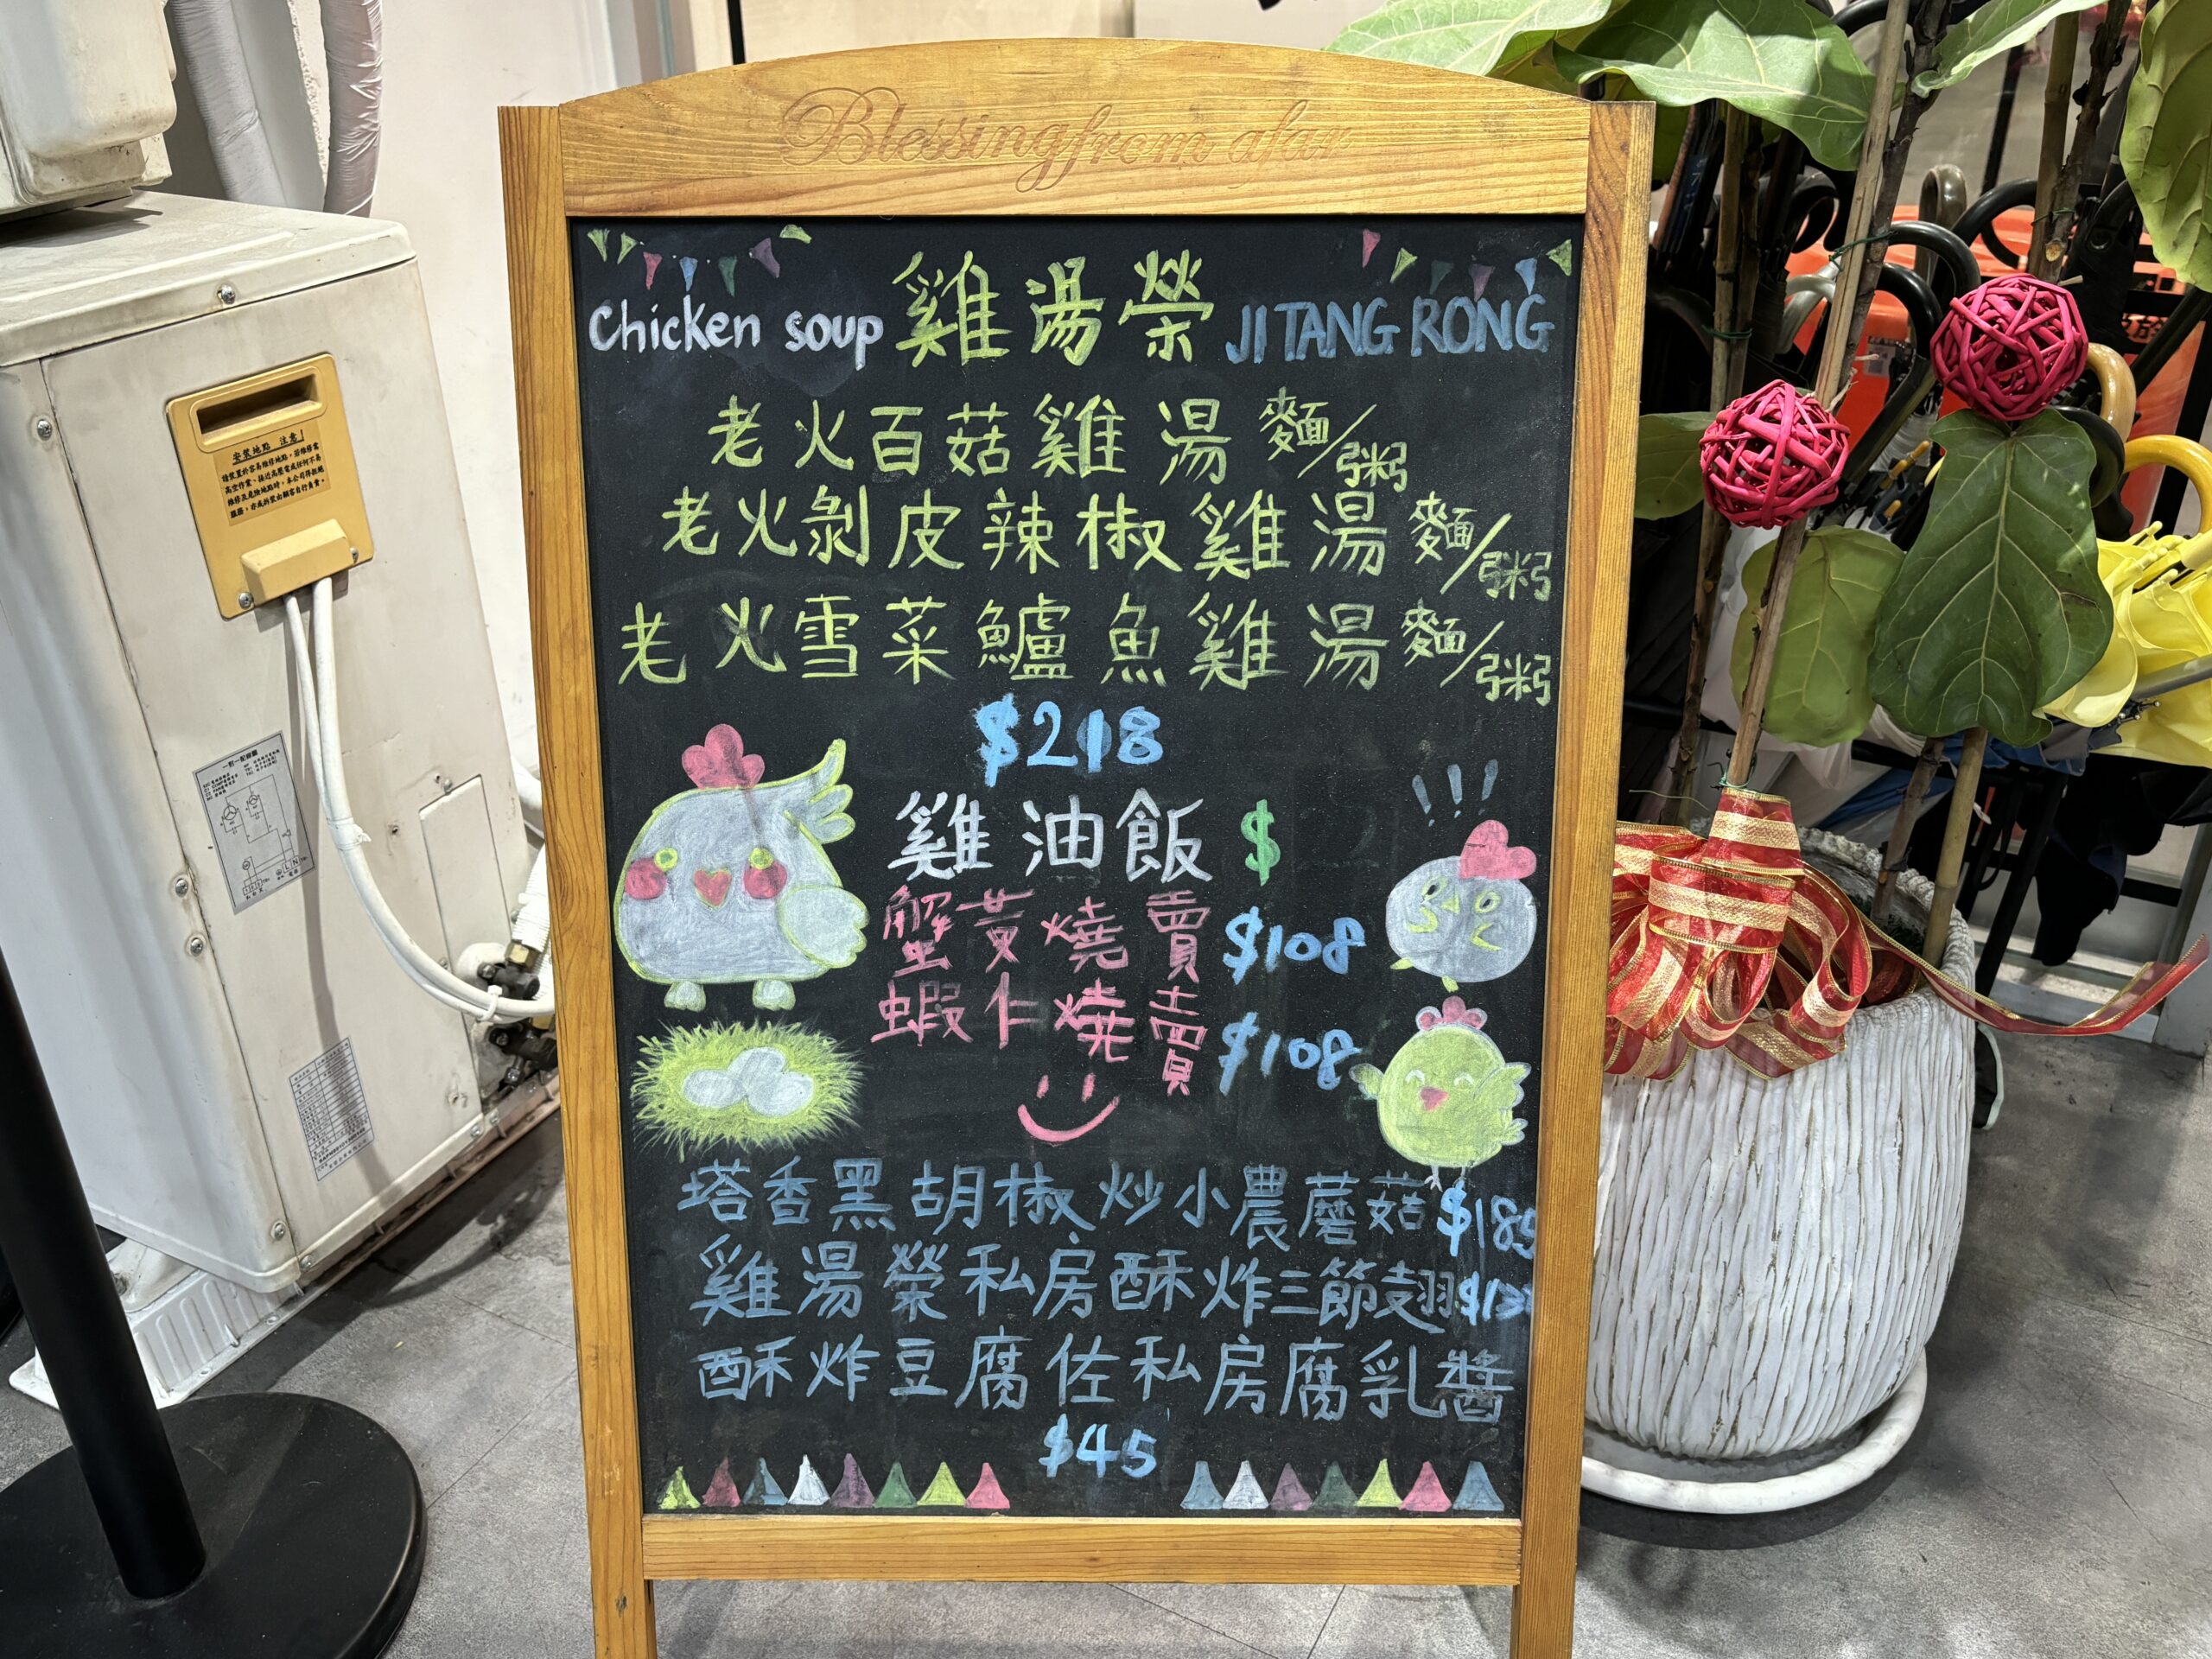 Blessing from afar
Chicken soup 雞湯榮 JI TANG RONG
老火百菇雞湯 麵/粥
老火剝皮辣椒雞湯 麵/粥
老火雪菜鱸魚雞湯 麵/粥
$218
雞油飯 $
蟹黃燒賣 $108
蝦仁燒賣 $108
塔香黑胡椒炒小農蘑菇 $185
雞湯榮私房酥炸三節翅
酥炸豆腐佐私房腐乳醬
$45
安裝地點 注意!
一對一配線圖